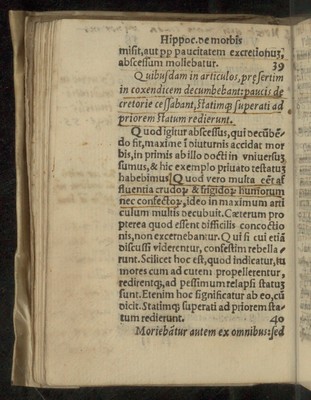 Hippoc. de morbis
misit, aut pp paucitatem excretionuz,
abscessum moliebatur. 39
Quibusdam in articulos, præsertim
in coxendicem decumbebant: paucis de
cretorie cessabant, statimq; superati ad
priorem statum redierunt.
Quod igitur abscessus, qui decūbē-
do fit, maxime ī diuturnis accidat mor
bis, in primis ab illo docti in vniuersuz
sumus, & hic exemplo priuato testatuz
habebimus. Quod vero multa eēt af
fluentia crudoꝝ & frigidoꝝ humorum
nec confectoꝝ, ideo in maximum arti
culum multis decubuit. Cæterum pro
pterea quod essent difficilis concoctio
nis, non excernebantur. Qui si cui etiā
discussi viderentur, confestim rebella
runt. Scilicet hoc est, quod indicatur, tu
mores cum ad cutem propellerentur,
redirentq;, ad pessimum relapsi statuz
sunt. Etenim hoc significatur ab eo, cū
dicit. Statimq; superati ad priorem sta-
tum redierunt. 40
Moriebātur autem ex omnibus: sed